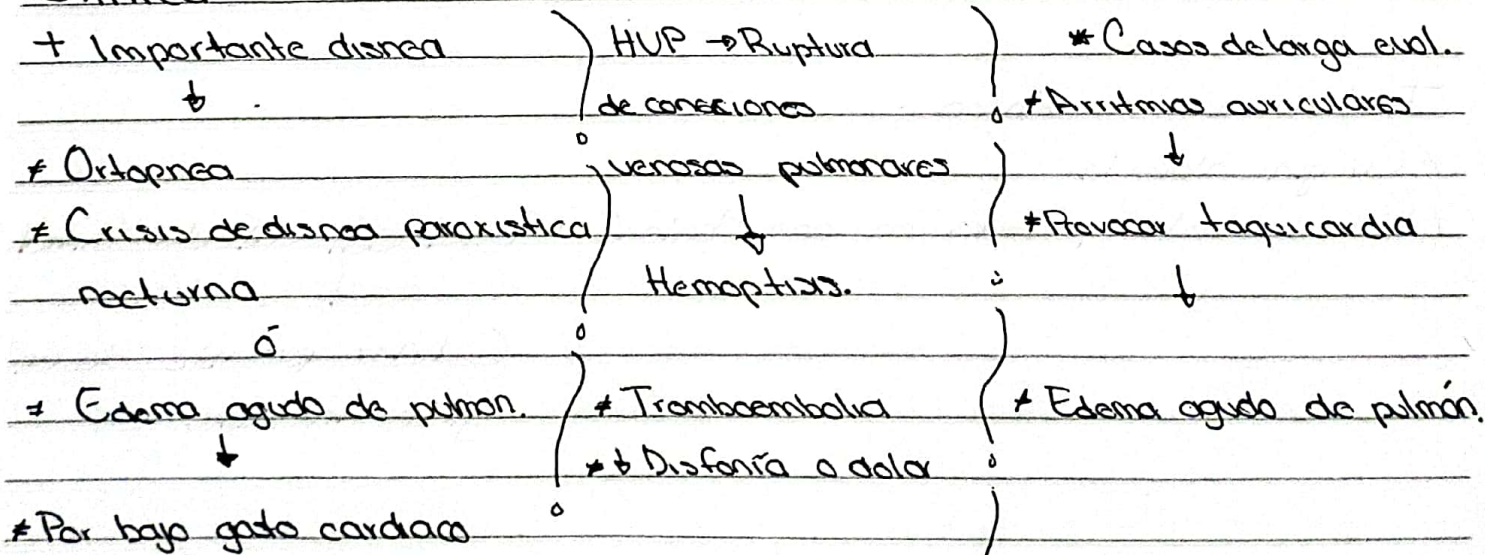 + Importante disnea
↓
* Ortopnea
* Crisis de disnea paroxistica
nocturna
ó
* Edema agudo de pulmon.
↓
* Por bajo gasto cardiaco
HVP → Ruptura
de conecciones
venosas pulmonares
↓
Hemoptisis.
* Tromboembolia
* ↓ Disfonía o dolor
* Casos de larga evol.
* Arritmias auriculares
↓
* Provocar taquicardia
↓
* Edema agudo de pulmón.